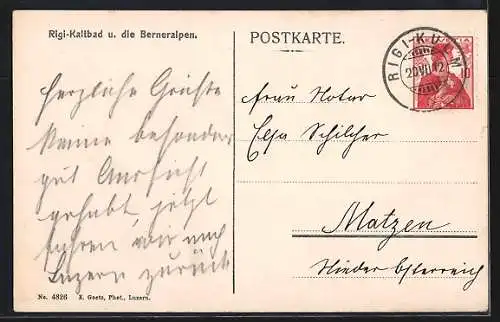 Rigi-Kaltbad u. die Berneralpen.
POSTKARTE.
RIGI-KULM
20 VII 12
10
Herzliche Grüsse
keine besonders
gut Aussicht
gehabt, jetzt
fahren wir nach
Luzern zurück
Frau Notar
Elsa Schilcher
Matzen
Nieder Österreich
No. 4826 E. Goetz, Phot., Luzern.